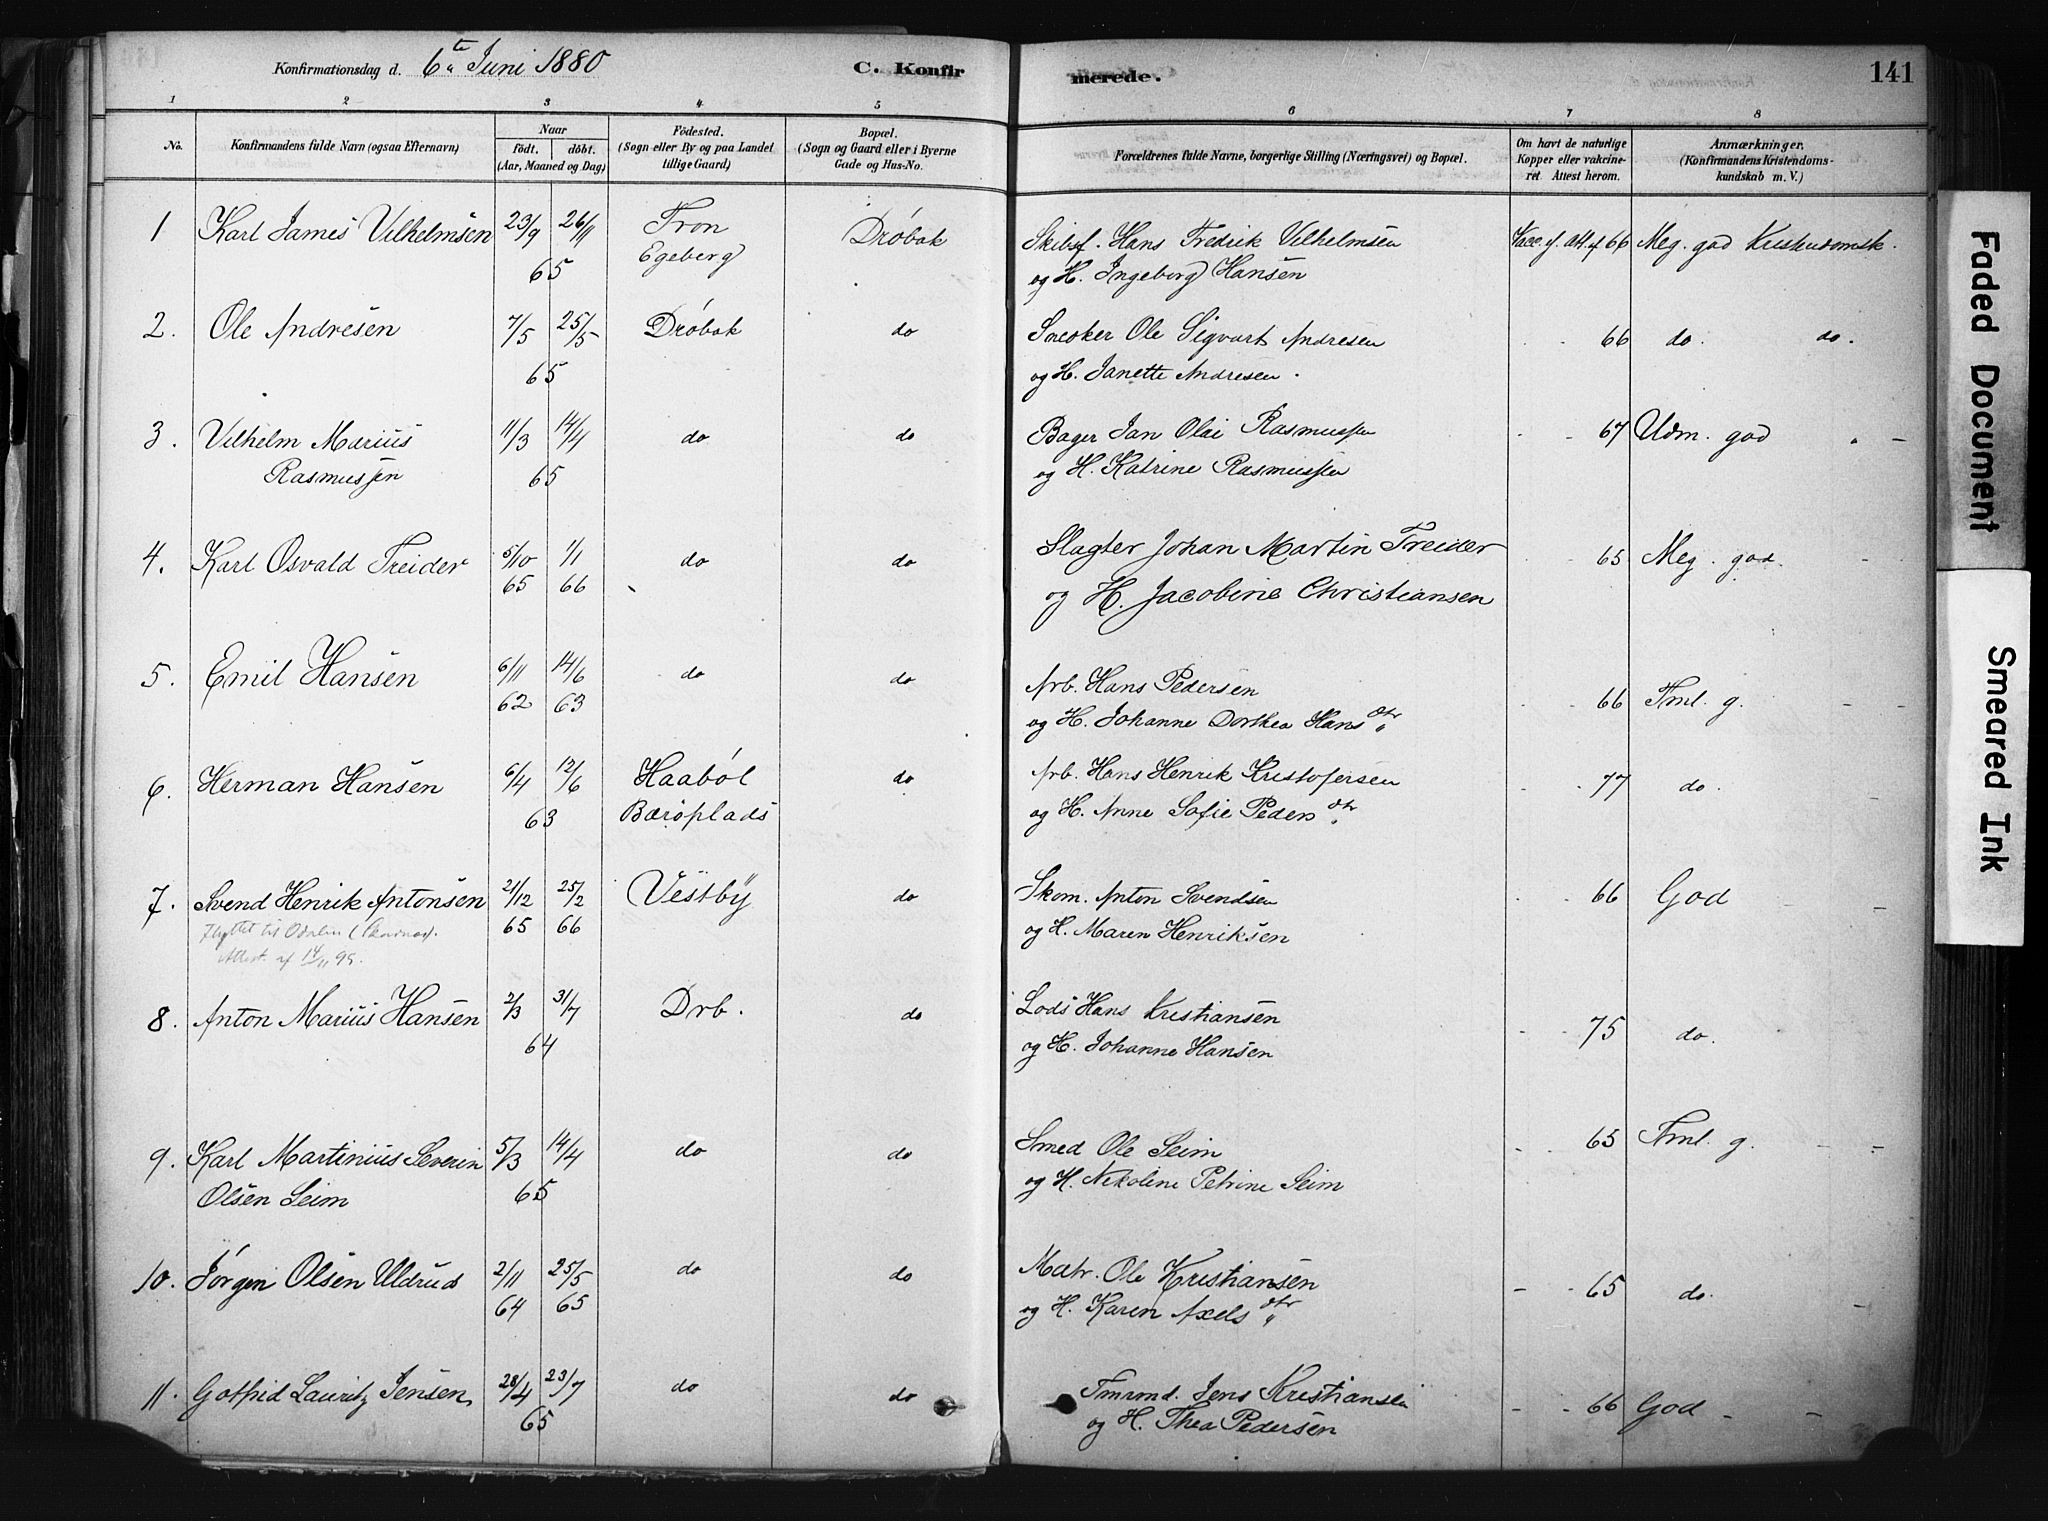 Konfirmationsdag d. 6te Juni 1880 C. Konfir merede. 141
1 2 3 4 5 6 7 8
No. Konfirmandens fulde Navn (ogsaa Efternavn) Naar født. døbt. (Aar, Maaned og Dag) Fødested. (Sogn eller By og paa Landet tillige Gaard) Bopæl. (Sogn og Gaard eller i Byerne Gade og Hus-No. Forældrenes fulde Navne, borgerlige Stilling (Næringsvei) og Bopæl. Om havt de naturlige Kopper eller vakcineret Attest herom. Anmærkninger. (Konfirmandens Kristendomskundskab m. V.)
1 Karl James Vilhelmsen 23/9 26/11 Fron Drøbak Skibsf. Hans Fredrik Vilhelmsen Vacc. att. af 66 Meg. god Kristendomsk.
65 Egeberg og H. Ingeborg Hansen
2. Ole Andresen 7/5 25/5 Drøbak do Snedker Ole Sigvart Andresen 66 do. do.
65 og H. Janette Andresen.
3. Vilhelm Marius 11/3 14/4 do do Bager Jan Olai Rasmussen 67 Udm. god " -
Rasmussen 65 og H. Katrine Rasmussen
4. Karl Osvald Treider 5/10 1/1 do do Slagter Johan Martin Treider 65 Meg. god. -
65 66 og H. Jacobine Christiansen
5. Emil Hansen 6/11 14/6 do do Arb. Hans Pedersen 66 Tml. g. - -
62 63 og H. Johanne Dorthea Hansdtr
6. Herman Hansen 6/4 12/6 Haabøl do Arb. Hans Henrik Kristofersen 77 do.
63 Bærøplads og H. Anne Sofie Pedersdtr
7. Svend Henrik Antonsen 21/12 25/2 Vestby do Skom. Anton Svendsen 66 God - -
Flyttet til Odalen (Skarnæs). 65 66 og H. Maren Henriksen
Attest. af 14/11 99.
8. Anton Marius Hansen 2/3 31/7 Drb. do Lods Hans Kristiansen 75 do.
64 og H. Johanne Hansen
9. Karl Martinius Severin 5/3 14/4 do do Smed Ole Seim 65 Tml. g. - -
Olsen Seim 65 og H. Nikoline Petrine Seim
10. Jørgen Olsen Uldrud 2/11 25/5 do do Matr. Ole Kristiansen 65 do. -
64 65 og H. Karen Axelsdtr
11. Gotfrid Lauritz Jensen 28/4 23/7 do do Tmrmd. Jens Kristiansen 66 God - -
65 og H. Thea Pedersen
Faded Document
Smeared Ink